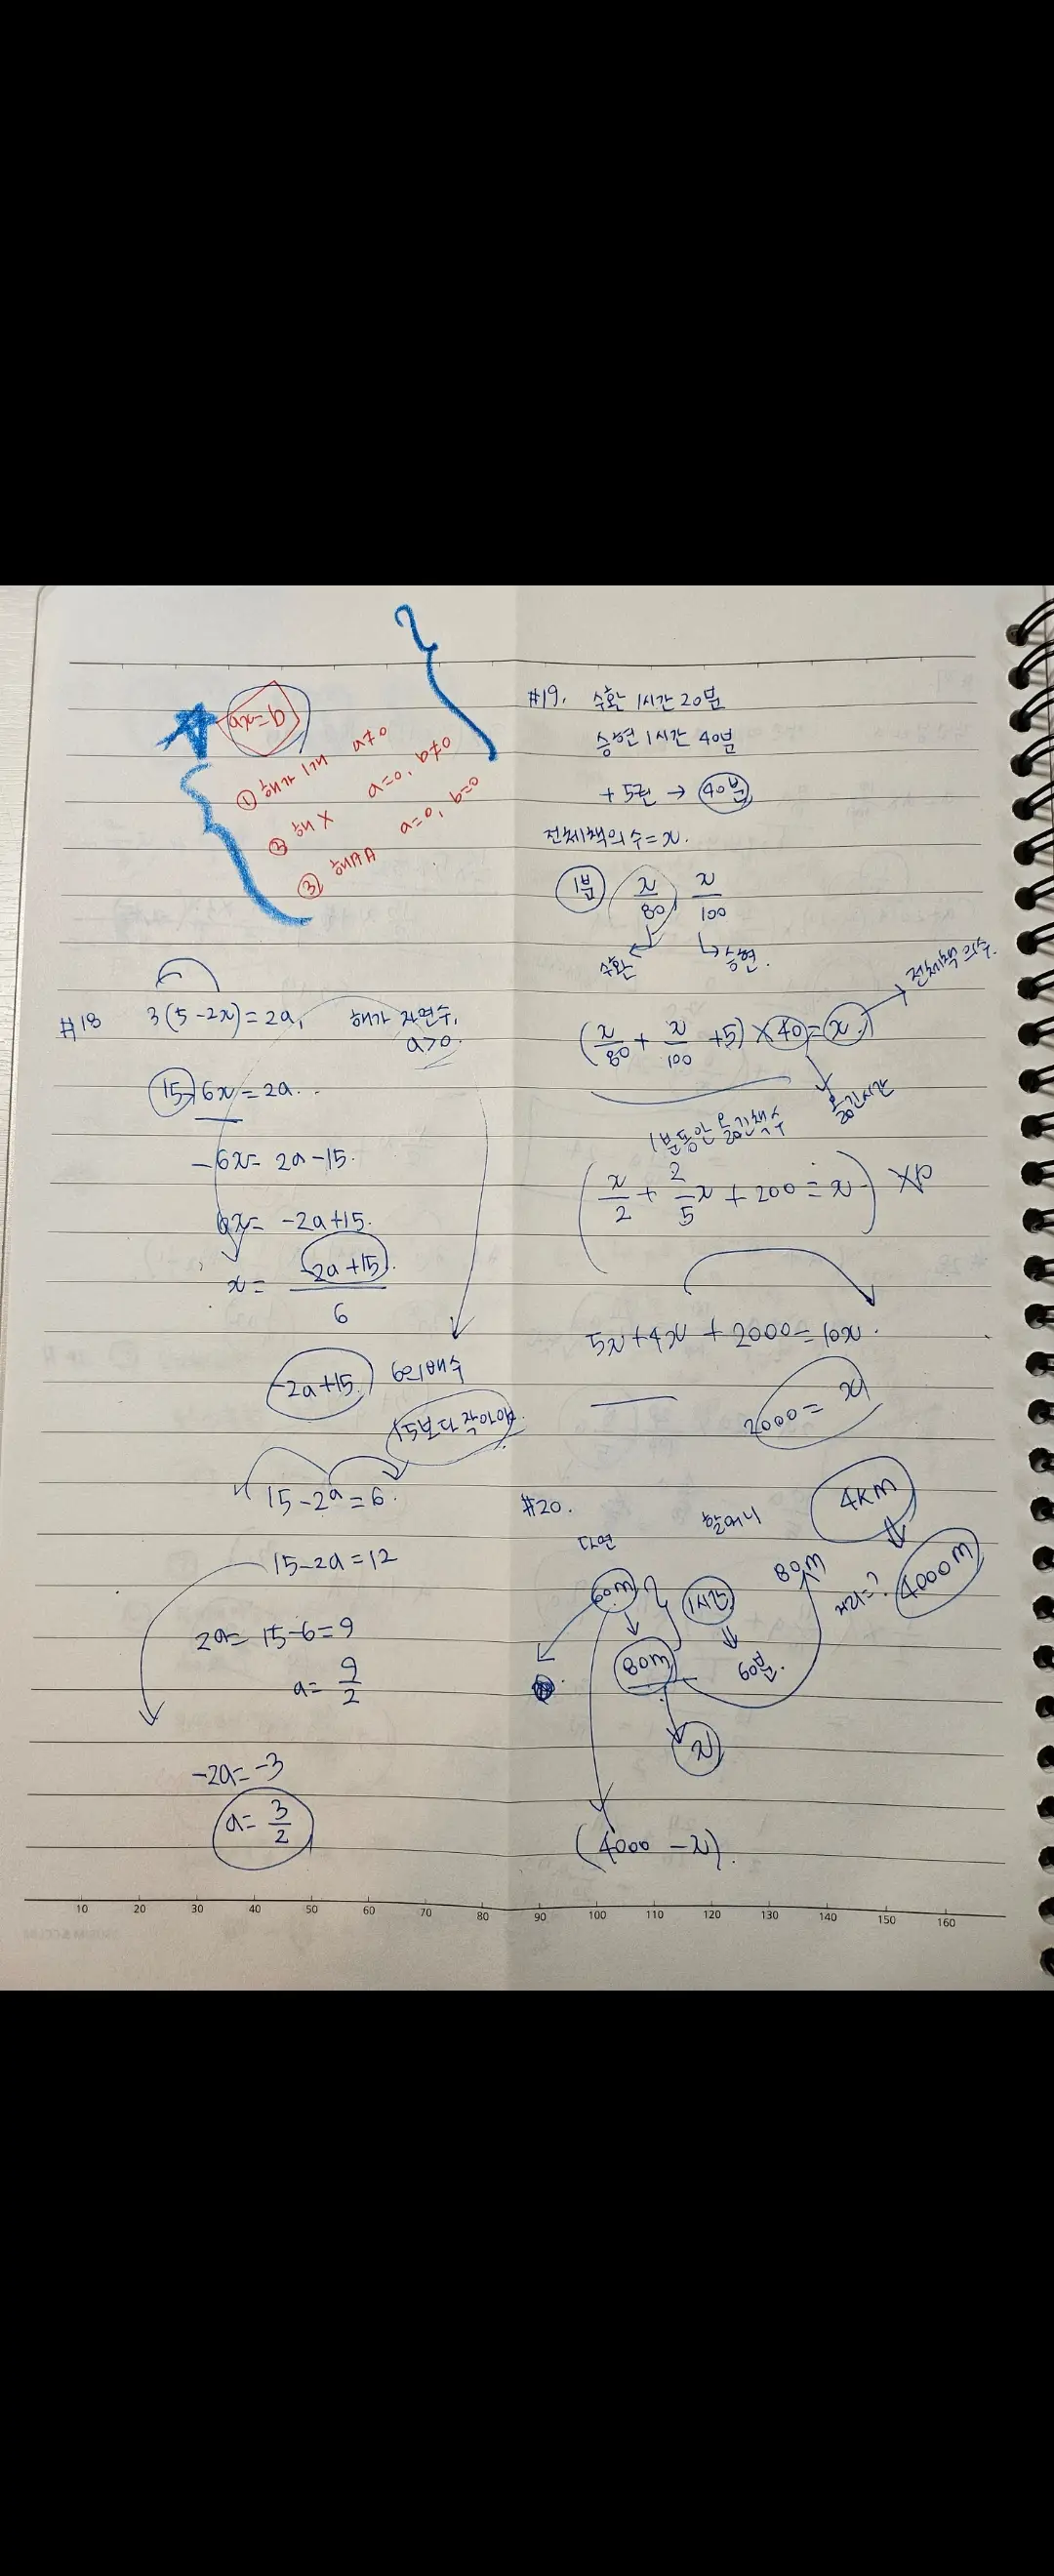 ax=b
① 해가 1개 a≠0
② 해 X a=0, b≠0
③ a=0, b=0
#18 3(5-2x)=2a, 해가 자연수,
a>0.
15-6x=2a.
-6x= 2a-15.
6x= -2a+15.
x= -2a+15
6
-2a+15 6의배수
15보다 작아야
15-2a=6.
15-2a=12
2a= 15-6=9
a= 9/2
-2a=-3
a= 3/2
#19. 수환 1시간 20분
승현 1시간 40분
+5권 → 40분
전체책의 수=x.
1분 x/80 x/100
수환 승현.
전체책의수.
(x/80 + x/100 +5) ×40=x.
1분동안 옮긴책수
옮긴시간
(x/2 + 2/5x +200 = x) ×10
5x+4x + 2000=10x.
2000= x
#20.
다연 할머니 4km
60m 1시간 80m 거리=? 4000m
80m 60분.
x
(4000 -x).
10 20 30 40 50 60 70 80 90 100 110 120 130 140 150 160